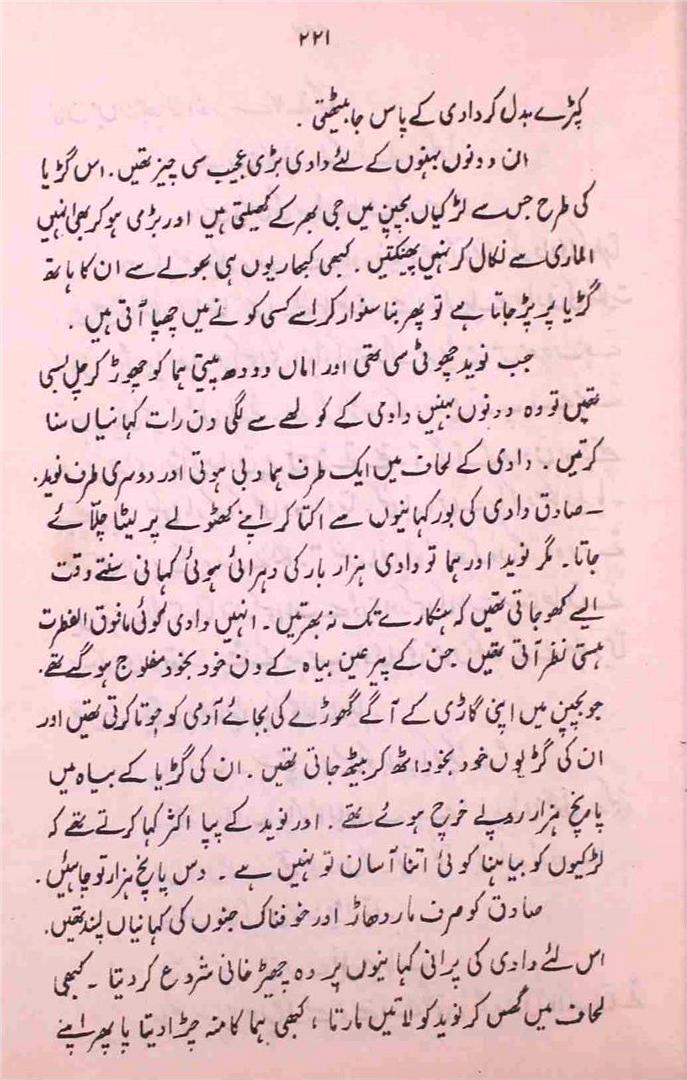 ۲۲۱
کپڑے بدل کر دادی کے پاس جا بیٹھتی ۔
ان دونوں بہنوں کے لئے دادی بڑی عجیب سی چیز تھیں ۔ اس گڑیا
کی طرح جس سے لڑکیاں بچپن میں جی بھر کے کھیلتی ہیں اور بڑی ہو کر بھی انہیں
الماری سے نکال کر نہیں پھینکتیں ۔ کبھی کبھار یوں ہی بھولے سے ان کا ہاتھ
گڑیا پر پڑ جاتا ہے تو پھر بنا سنوار کر اسے کسی کونے میں چھپا آتی ہیں ۔
جب نوید چھوٹی سی تھی اور اماں دودھ پیتی ہما کو چھوڑ کر چل بسی
تھیں تو وہ دونوں بہنیں دادی کے کولھے سے لگی دن رات کہانیاں سنا
کرتیں ۔ دادی کے لحاف میں ایک طرف ہما دبی ہوتی اور دوسری طرف نوید ۔
۔ صادق دادی کی بور کہانیوں سے اکتا کر اپنے کھٹولے پر لیٹا چلّائے
جاتا ۔ مگر نوید اور ہما تو دادی ہزار بار کی دہرائی ہوئی کہانی سنتے وقت
ایسے کھو جاتی تھیں کہ ہنکارے تک نہ بھرتیں ۔ انہیں دادی کوئی مافوق الفطرت
ہستی نظر آتی تھیں جن کے پیر عین بیاہ کے دن خود بخود مفلوج ہو گئے تھے ۔
جو بچپن میں اپنی گاڑی کے آگے گھوڑے کی بجائے آدمی کو جوتا کرتی تھیں اور
ان کی گڑیوں خود بخود اٹھ کر بیٹھ جاتی تھیں ۔ ان کی گڑیا کے بیاہ میں
پانچ ہزار روپے خرچ ہوئے تھے ۔ اور نوید کے پپا اکثر کہا کرتے تھے کہ
لڑکیوں کو بیاہنا کوئی اتنا آسان تو نہیں ہے ۔ دس پانچ ہزار تو چاہئیں ۔
صادق کو صرف مار دھاڑ اور خوفناک جنوں کی کہانیاں پسند تھیں ۔
اس لئے دادی کی پرانی کہانیوں پر وہ چھیڑ خانی شروع کر دیتا ۔ کبھی
لحاف میں گھس کر نوید کو لاتیں مارتا ، کبھی ہما کا منہ چڑا دیتا یا پھر اپنے